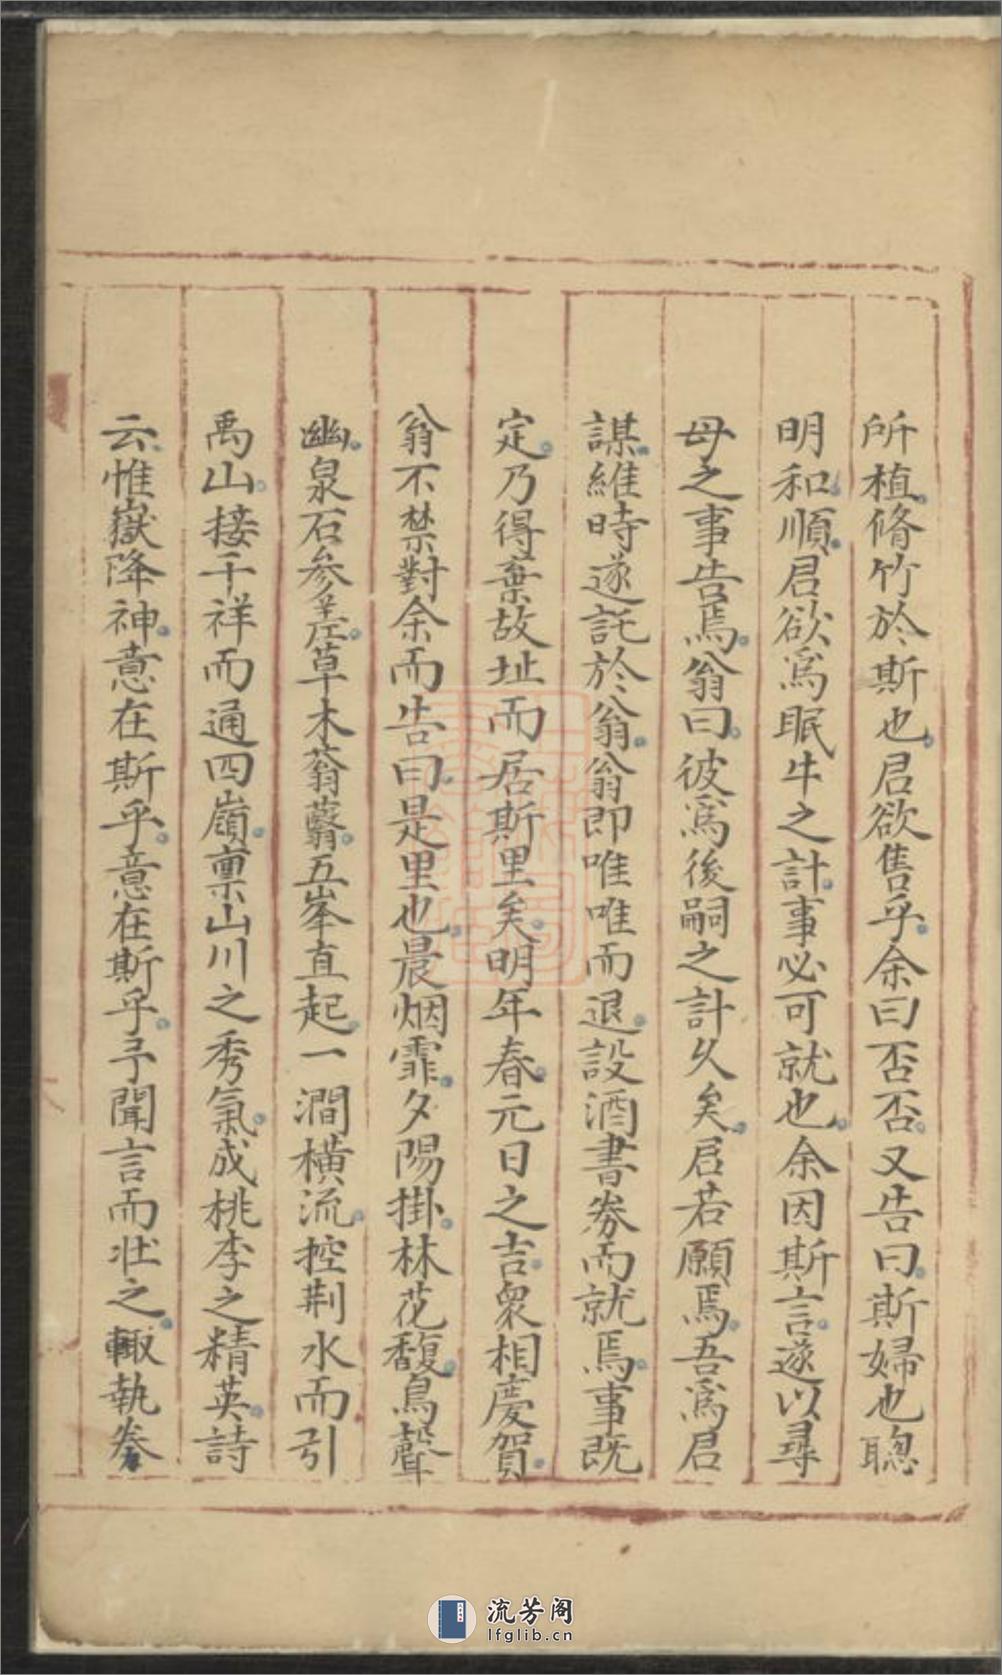 所植脩竹於斯也君欲售乎余曰否否又告曰斯婦也聰
明和順君欲爲眠牛之計事必可就也余因斯言遂以尋
母之事告焉翁曰彼爲後嗣之計久矣君若願焉吾爲君
謀維時遂託於翁翁即唯唯而退設酒書券而就焉事既
定乃得棄故址而居斯里矣明年春元日之吉衆相慶賀
翁不禁對余而告曰是里也晨烟霏夕陽掛林花馥鳥聲
幽泉石參差草木蓊蘙五峯直起一澗橫流控荆水而引
禹山接千祥而通四嶺禀山川之秀氣成桃李之精英詩
云惟嶽降神意在斯乎意在斯乎予聞言而壯之輙執券
流芳阁
lfglib.cn